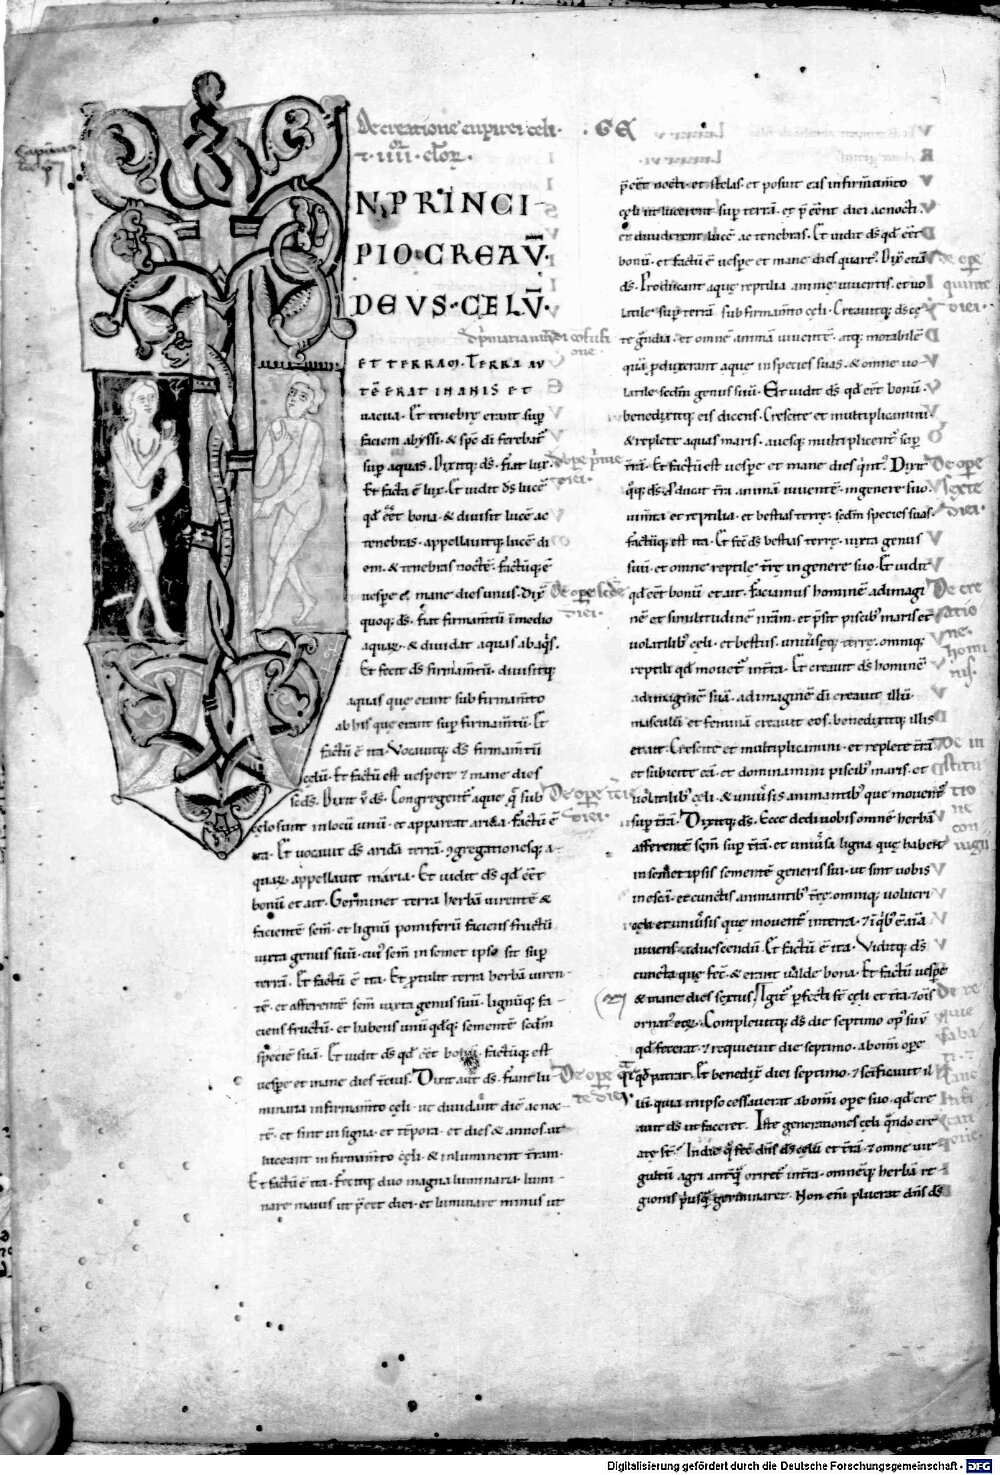 De creatione empirei celi·
· GE
N PRINCI
PIO·CREAV̄·
DEVS·CELV̄·
ET TERRAM. TERRA AV
TĒ ERAT INANIS ET
uacua· Et tenebrę erant sup̄
faciem abẏssi· & sp̄c dī ferebat᷑
sup̄ aquas. Dixitq; d̄s· fiat lux·
Et facta ē lux. Et uidit d̄s lucē
qd̄ eēt bona· & diuisit lucē ac
tenebras· appellauitq; lucē di
em· & tenebras noctē. factūq; ē
uesp̄e & mane dies unus. Dix̄
quoq; d̄s· fiat firmam̄tū ī medio
aquar̄· & diuidat aquas ab aq̄s.
Et fecit d̄s firmam̄tū· diuisitq;
aquas que erant sub firmam̄to
ab his que erant sup̄ firmam̄tū· Et
factū ē ita. Vocauitq; d̄s firmam̄tū
cęlū· Et factū est uespere ⁊ mane dies
sc̄ds. Dixit ū d̄s. Congregent᷑ aque q̄ sub
celo sunt in locū unū· et appareat arida· factū ē
ita· Et uocauit d̄s aridā terrā· ꝯgregationesq; a-
quar̄· appellauit maria· Et uidit d̄s qd̄ eēt
bonū et ait· Germinet terra herbā uirentē &
facientē sem̄· et lignū pomiferū faciens fructū
iuxta genus suū· cui᷒ sem̄ in semet ipso sit sup̄
terrā. Et factū ē ita· Et ꝓtulit terra herbā uiren-
tē· et afferentē sem̄ iuxta genus suū· lignūq; fa-
ciens fructū· et habens unū qd̄q; sementē sc̄dm
speciē suā· Et uidit d̄s qd̄ eēt bonū· factūq; est
uesp̄e et mane dies t̄cius· Dixit aut̄ d̄s. fiant lu-
minaria in firmam̄to cęli· ut diuidant diē ac noc-
tē· et sint in signa· et tēpora· et dies & annos· ut
luceant in firmam̄to cęli· & inluminent t̄ram·
Et factū ē ita· fecitq; duo magna luminaria· lumi-
nare maius ut p̄eēt diei· et luminare minus ut
p̄eēt nocti· et stelas· et posuit eas in firmam̄to
cęli ut lucerent sup̄ terrā· et p̄eēnt diei ac nocti·
et diuiderent lucē ac tenebras· Et uidit d̄s qd̄ eēt
bonū· et factū ē uesp̄e et mane dies quart᷒· Dix̄ etiā
d̄s· Producant aquę reptilia animę uiuentis· et uo
latile sup̄ terrā sub firmam̄to cęli. Creauitq; d̄s ce
te ḡndia· et omnē animā uiuentē· atq; motabilē
quā ꝓduxerant aque in species suas· & omne uo-
latile sc̄dm genus suū· Et uidit d̄s qd̄ eēt bonū·
benedixitq; eis dicens· Crescite et multiplicamini·
& replete aquas maris· auesq; multiplicent᷑ sup̄
t̄rā· Et factū est uesp̄e et mane dies q̄int᷒· Dixit
q̊q; d̄s· ꝓducat t̄ra animā uiuentē in genere suo·
ium̄ta et reptilia· et bestias terrę· sc̄dm species suas·
factūq; est ita· Et fec̄ d̄s bestias terrę· iuxta genus
suū· et omne reptile t̄rę in genere suo· Et uidit
qd̄ eēt bonū· et ait· faciamus hominē ad imagi
nē et similitudinē nr̄am· et p̄sit piscib᷒ maris et
uolatilib᷒ cęli· et bestiis uniu̅seq; terrę· omniq;
reptili qd̄ mouet᷑ in t̄ra· Et creauit d̄s hominē
ad imaginē suā· ad imaginē dī creauit illū·
masculū et feminā creauit eos· benedixitq; illis
et ait· Crescite et multiplicamini· et replete t̄rā
et subicite eā· et dominamini piscib᷒ maris· et
uolatilib᷒ cęli· & uniu̅sis animantib᷒ que mouent᷑
sup̄ t̄rā· Dixitq; d̄s· Ecce dedi uobis omnē herbā
afferentē sem̄ sup̄ t̄rā· et uniu̅sa ligna quę habent
in semet ipsis sementē generis sui· ut sint uobis
in escā· et cunctis animantib᷒ t̄rę· omniq; uolucri
cęli et uniu̅sis que mouent᷑ in terra· ⁊ ī q̄b᷒ ē aīa
uiuens ad uescendū· Et factū ē ita· Viditq; d̄s
cuncta que fec̄· & erant ualde bona· Et factū uesp̄e
& mane dies sextus· Igit᷑ ꝑfecti st̄ cęli et t̄ra· ⁊ oīs
ornat᷒ eor̄· Compleuitq; d̄s die septimo op᷒ suū
qd̄ fecerat· ⁊ requieuit die septimo· ab om̄i opere
qd̄ patrat· Et benedix̄ diei septimo· ⁊ sc̄ificauit il
lū· quia in ipso cessauerat ab om̄i opere suo· qd̄ cre
auit d̄s ut faceret· Iste generationes cęli q̄ndo cre
atę st̄· In die q̄ fec̄ dn̄s d̄s cęlū et t̄rā· ⁊ omne uir
gultū agri antq̄ oriret᷑ in t̄ra· omneq; herbā re
gionis p̄usq̄ germinaret· Non enī pluerat dn̄s d̄s
De ope quinte diei·
De ope sexte diei·
De ope p̄me diei·
De ope scd̄e diei·
De creatione hominis·
De ope tcie diei·
De institutione coniugii
De ope q̄rte diei·
Digitalisierung gefördert durch die Deutsche Forschungsgemeinschaft · DFG